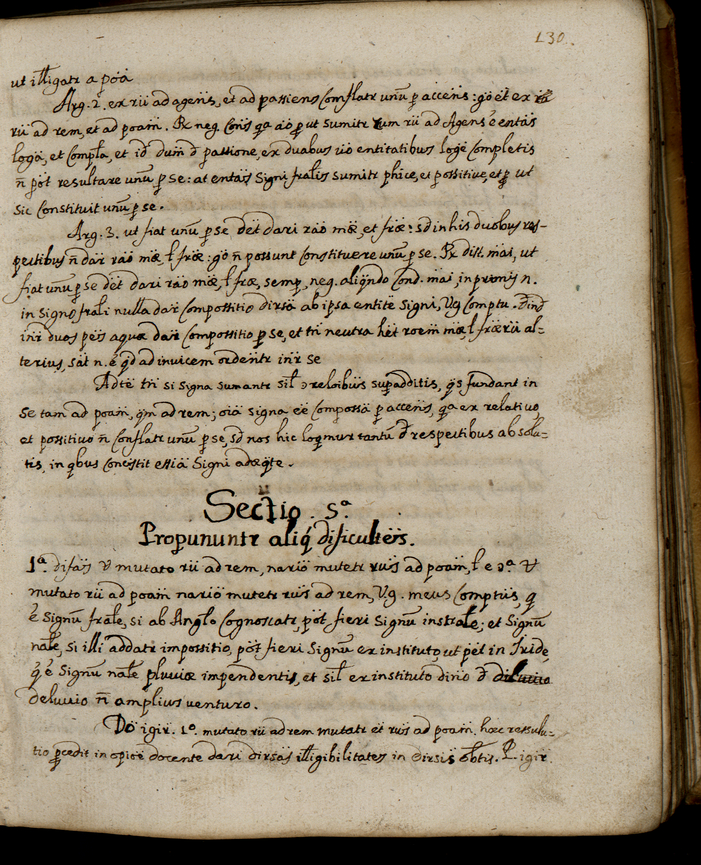 130.
ut illigatr a poa
Arg. 2. ex rū ad agens, et ad patiens Conflatr unū p accens: go et ex
rū ad rem, et ad poam. Rx neg. Cons qa ao p ut sumitr rū ad Agens e entas
loga, et Compla, et id dum d passione, ex duabus uo entitatibus loge Completis
n pot resultare unū p se: at entas Signi fralis sumitr phice, et possitive, et p ut
sic Constituit unū p se.
Arg. 3. ut fiat unū p se det dari rao mæ, et fræ: sd in his duobus res-
pectibus n dar rao mæ, l fræ: go n possunt Constituere unū p se. Rx dist. mai, ut
fiat unū p se det dari rao mæ, l fræ, semp, neg. aliqndo Cond. mai, in pronis n.
in Signo frali nulla dar Compossitio dirsa ab ipsa entite Signi, Vg Comptu.
inr duos pes aquæ dar Compossitio p se, et tn neutra het roem mæ, l fræ rū al-
terius, sat n. e qd ad invicem ordentr inr se
Adte tn si Signa sumantr sil reloibus supadditis, qs fundant in
se tam ad poam, qm ad rem; oia signa ee Compossa p accens, qa ex relativo
et possitivo n Conflatr unū p se, sd nos hic loqmur tantu d respectibus absolu-
tis, in qbus Concistit essia Signi adæqte.
Sectio. 5ª
Propununtr aliq dificultes.
1ª difas V mutato rū ad rem, nario mutetr rus ad poam, l e 2ª V
mutato rū ad poam nario mutetr rus ad rem, Vg. meus Comptus, q
e Signū frale, si ab Anglo Cognoscatr, pot fieri Signū instrale; et Signū
nale, si illi addatr impossitio, pot fieri Signū ex instituto, ut pet in Iride,
q e Signū nale pluviæ impendentis, et sil ex instituto dino d
deluvio n amplius venturo.
Do igir. 1º. mutato rū ad rem mutatr et rus ad poam. hæc ressulu-
tio pcedit in opioe docente dari dirsas illigibilitates in dirsis obtis. P. igir